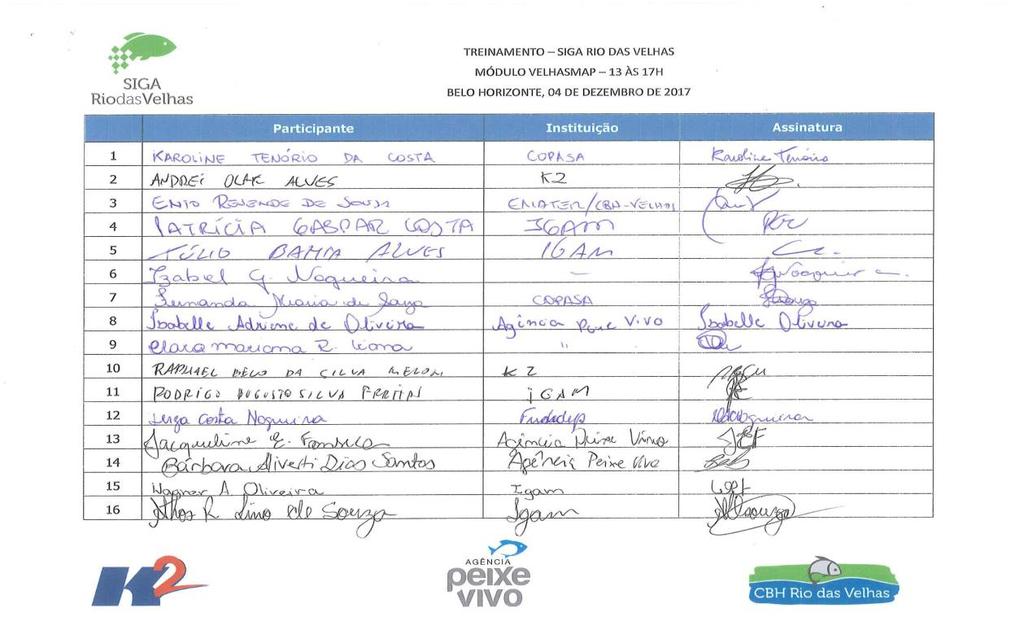 SIGA
RiodasVelhas
TREINAMENTO – SIGA RIO DAS VELHAS
MÓDULO VELHASMAP – 13 ÀS 17H
BELO HORIZONTE, 04 DE DEZEMBRO DE 2017
Participante Instituição Assinatura
1 KAROLINE TENÓRIO DA COSTA COPASA Karoline Tenório
2 ANDREI OLAK ALVES K2
3 ENIO RESENDE DE SOUSA EMATER/CBH-VELHAS
4 PATRÍCIA GASPAR COSTA IGAM
5 TÚLIO BAHIA ALVES IGAM
6 Izabel G. Nogueira –
7 Fernanda Maria de Souza COPASA
8 Isabelle Adriene de Oliveira Agência Peixe Vivo Isabelle Oliveira
9 Clara Mariana R. "
10 RAPHAEL BELO DA SILVA K2
11 RODRIGO AUGUSTO SILVA IGAM
12 Costa Nogueira
13 Jacqueline E. Fonseca Agência Peixe Vivo
14 Bárbara Dias Santos Agência Peixe Vivo
15 Wagner A Oliveira Igam
16 Athos R Lino de Souza Igam
K2
AGÊNCIA
peixe
vivo
CBH Rio das Velhas